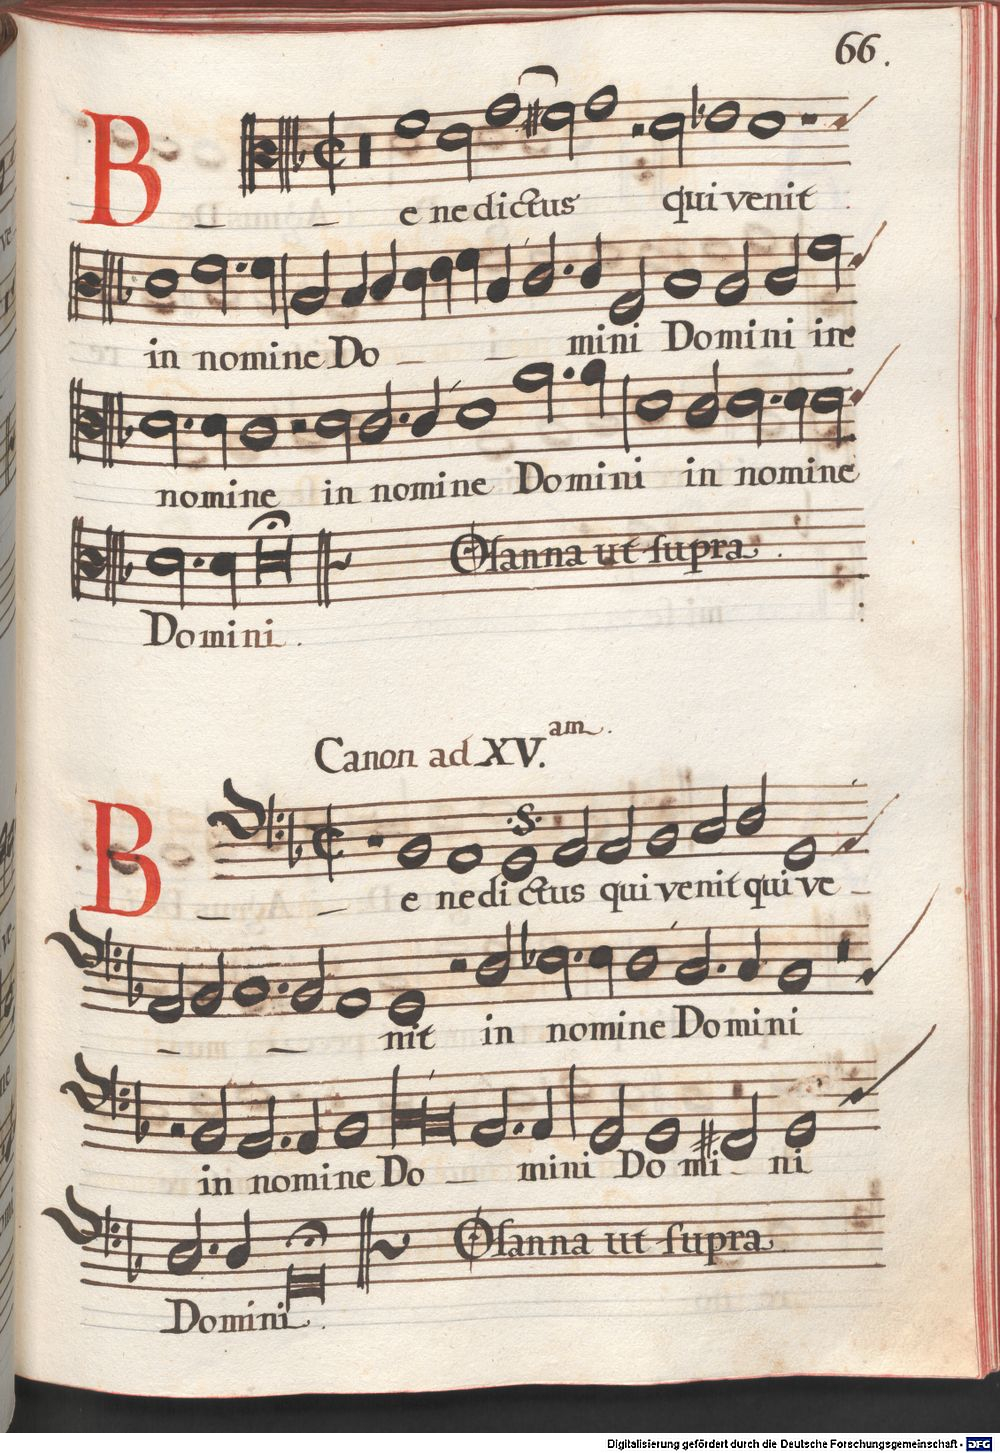 66.
B e nedictus qui venit
in nomine Do mini Domini in
nomine in nomine Domini in nomine
Osanna ut supra.
Domini.
Canon ad XV.am
B e nedictus qui venit qui ve
nit in nomine Domini
in nomine Do mini Do mi ni
Osanna ut supra
Domini.
Digitalisierung gefördert durch die Deutsche Forschungsgemeinschaft - DFG